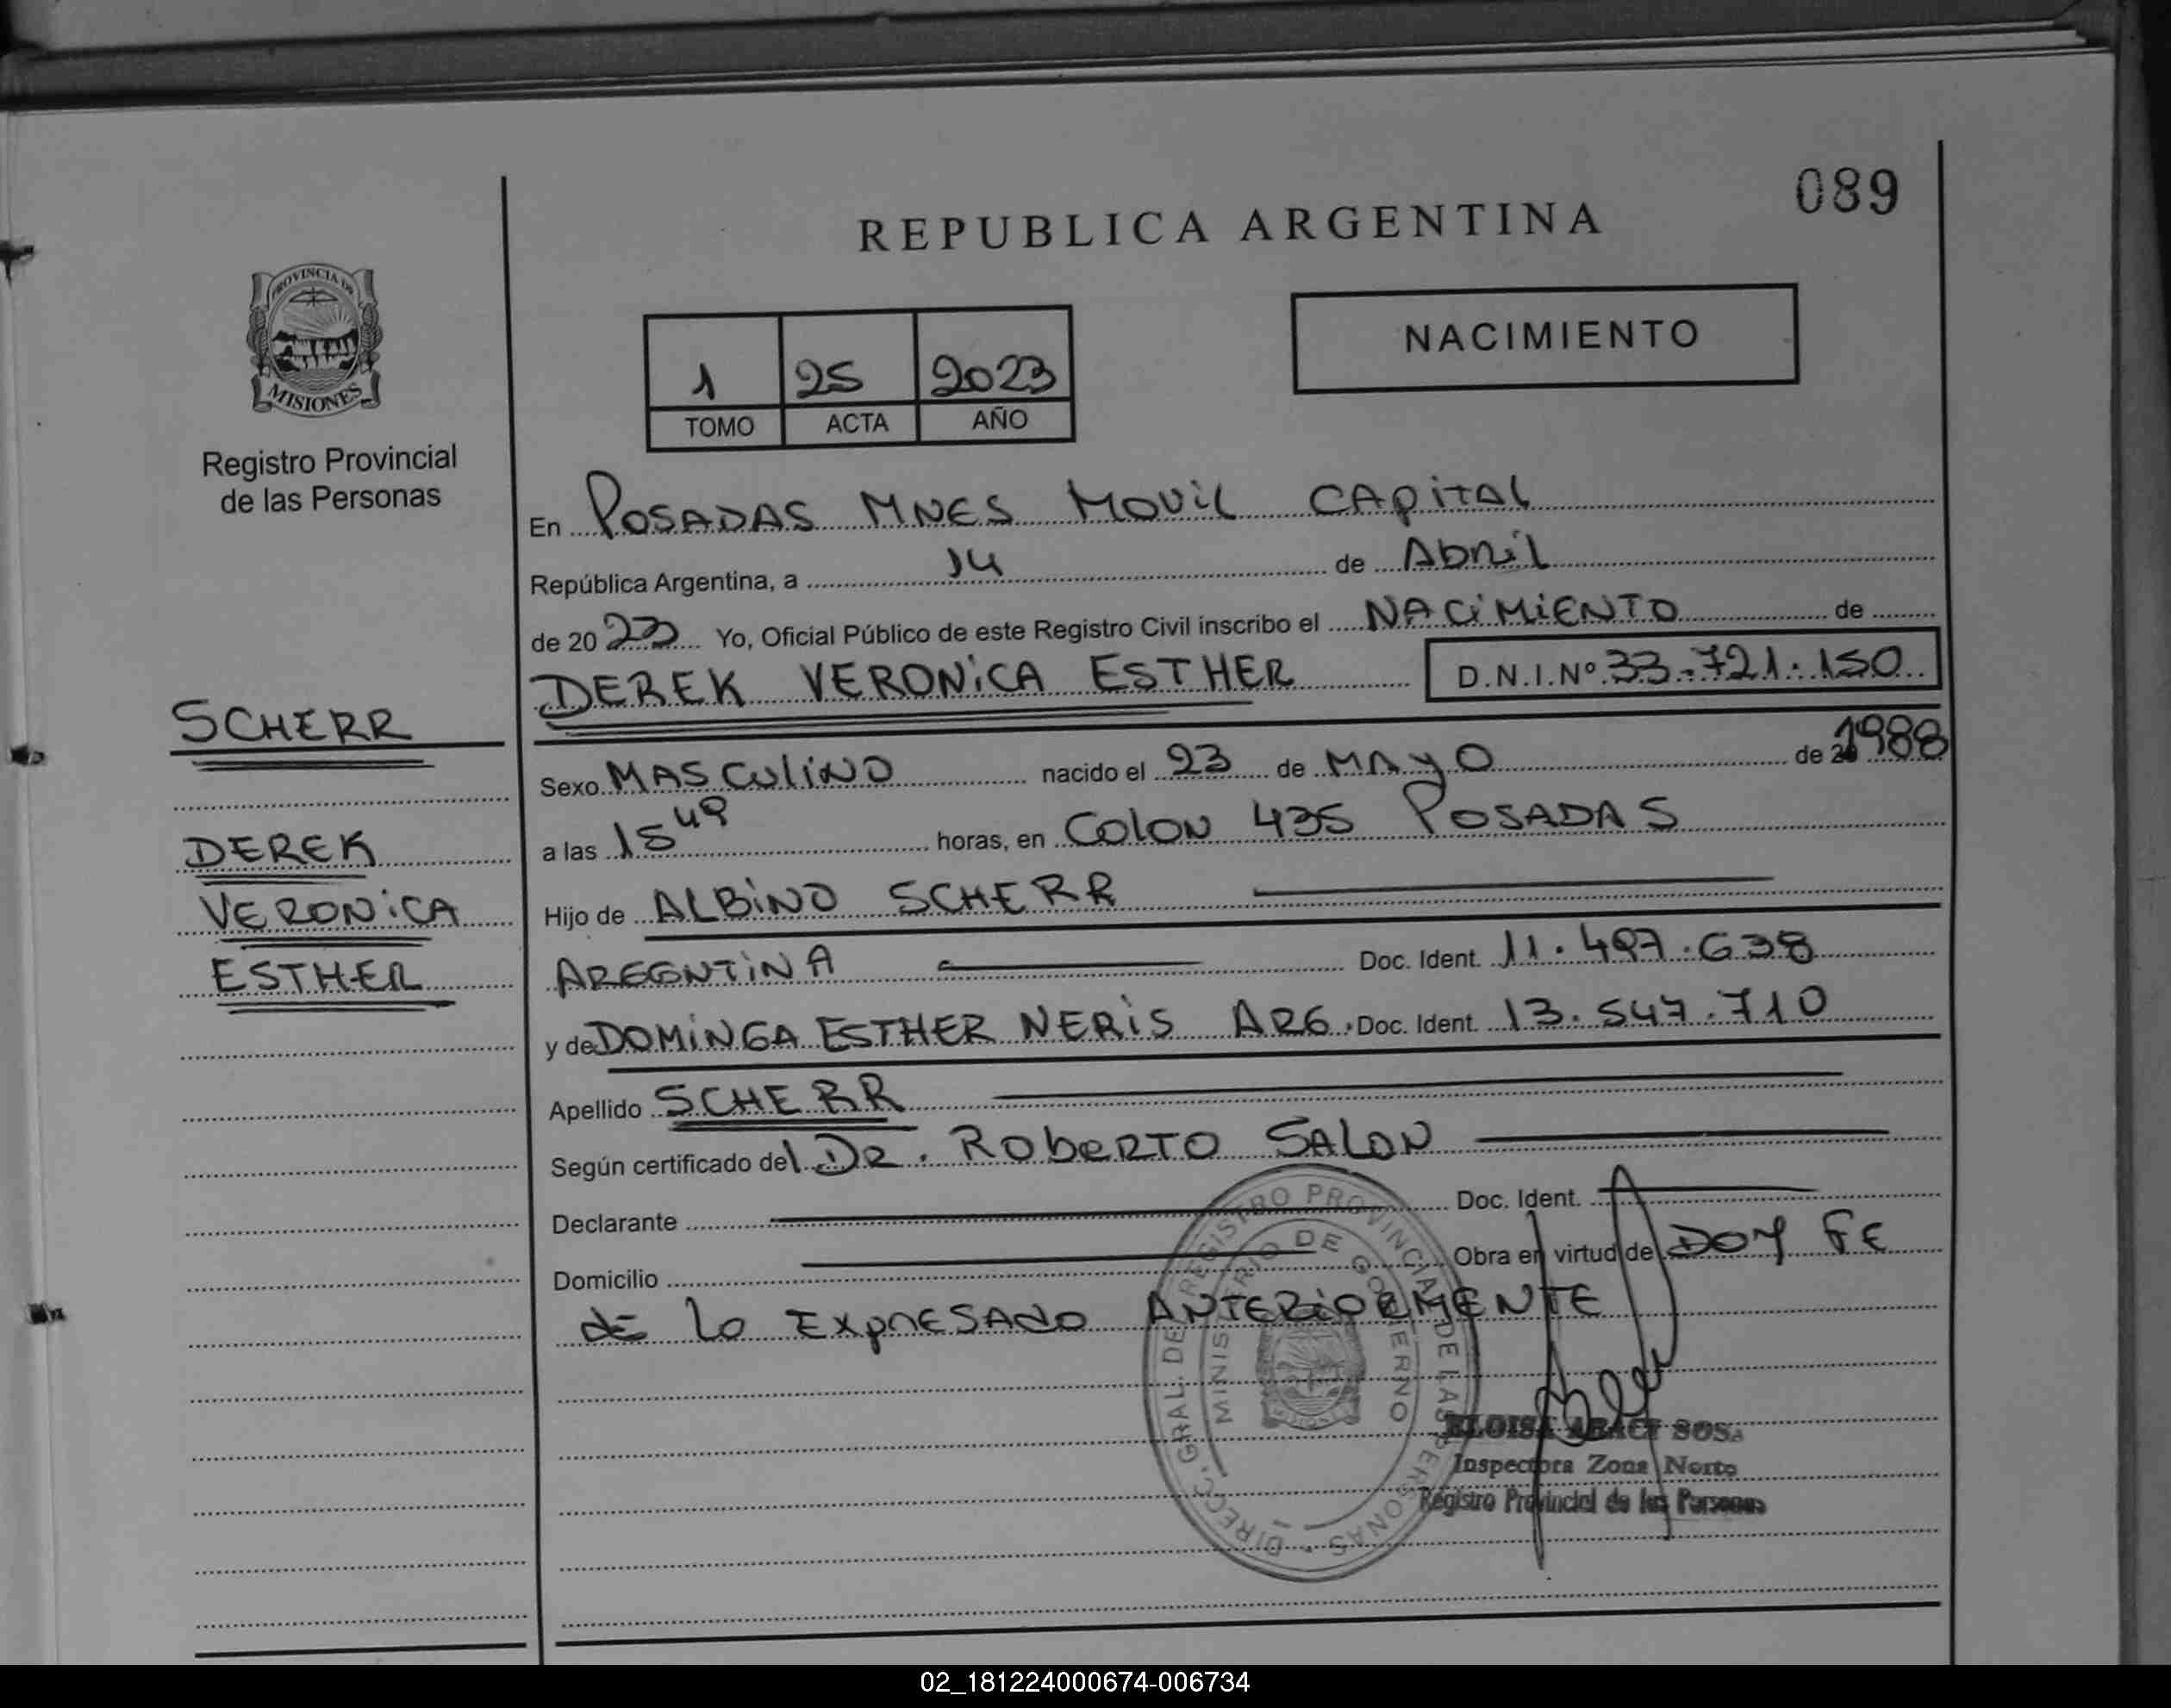 089
REPUBLICA ARGENTINA
PROVINCIA DE
MISIONES
Registro Provincial
de las Personas
1 25 2023
TOMO ACTA AÑO
NACIMIENTO
En POSADAS MNES MOVIL CAPITAL
República Argentina, a 14 de Abril
de 20 23 Yo, Oficial Público de este Registro Civil inscribo el NACIMIENTO de
DEREK VERONICA ESTHER D.N.I.Nº 33.721.150
SCHERR
Sexo MASCULINO nacido el 23 de MAYO de 1988
a las 15 49 horas, en COLON 435 POSADAS
DEREK
VERONICA
ESTHER
Hijo de ALBINO SCHERR
AREGNTINA Doc. Ident. 11.497.638
y de DOMINGA ESTHER NERIS ARG. Doc. Ident. 13.547.710
Apellido SCHERR
Según certificado del DR. ROBERTO SALON
Declarante Doc. Ident.
Domicilio Obra en virtud de DOY FE
DE LO EXPRESADO ANTERIORMENTE
DIRECC. GRAL. DE REGISTRO PROVINCIAL DE LAS PERSONAS
MINISTERIO DE GOBIERNO
SOSA
Inspectora Zona Norte
Registro Provincial de las Personas
02_181224000674-006734